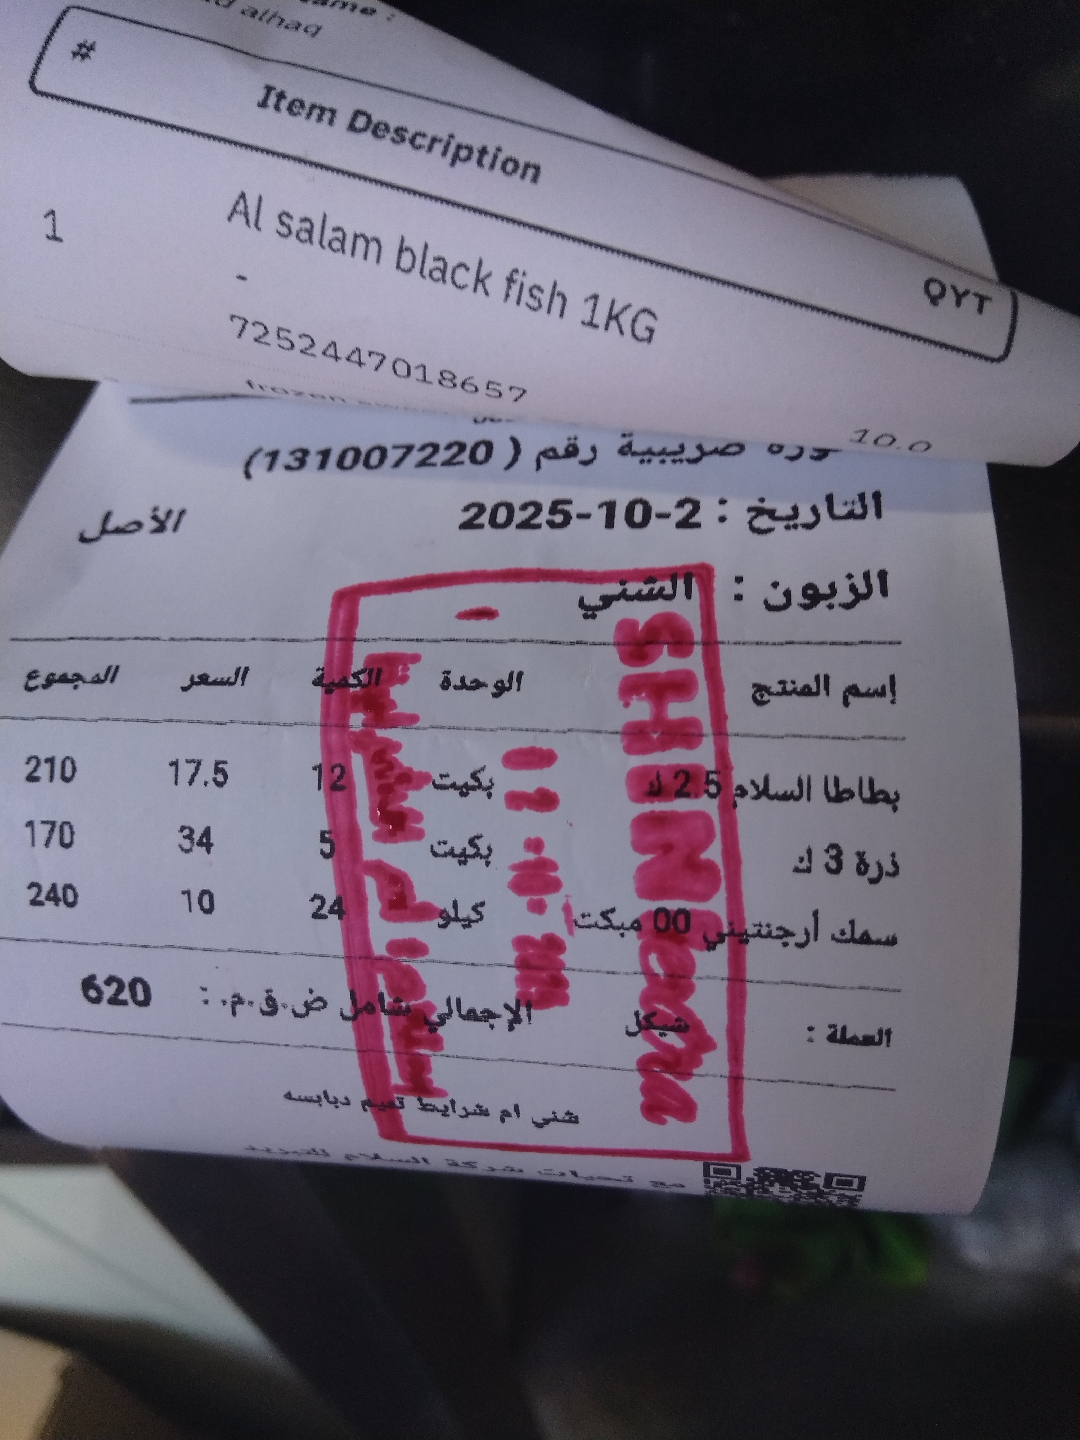 alhaq
# Item Description QYT
1 Al salam black fish 1KG
-
7252447018657
10.0
ضريبية رقم ( 131007220)
التاريخ : 2-10-2025 الأصل
الزبون : الشني
إسم المنتج الوحدة الكمية السعر المجموع
بطاطا السلام 2.5 ك بكيت 12 17.5 210
ذرة 3 ك بكيت 5 34 170
سمك أرجنتيني 00 مبكت كيلو 24 10 240
العملة : شيكل الإجمالي شامل ض.ق.م. : 620
شني ام شرايط تميم دبابسه
مع تحيات شركة السلام للتبريد
SHINI extra